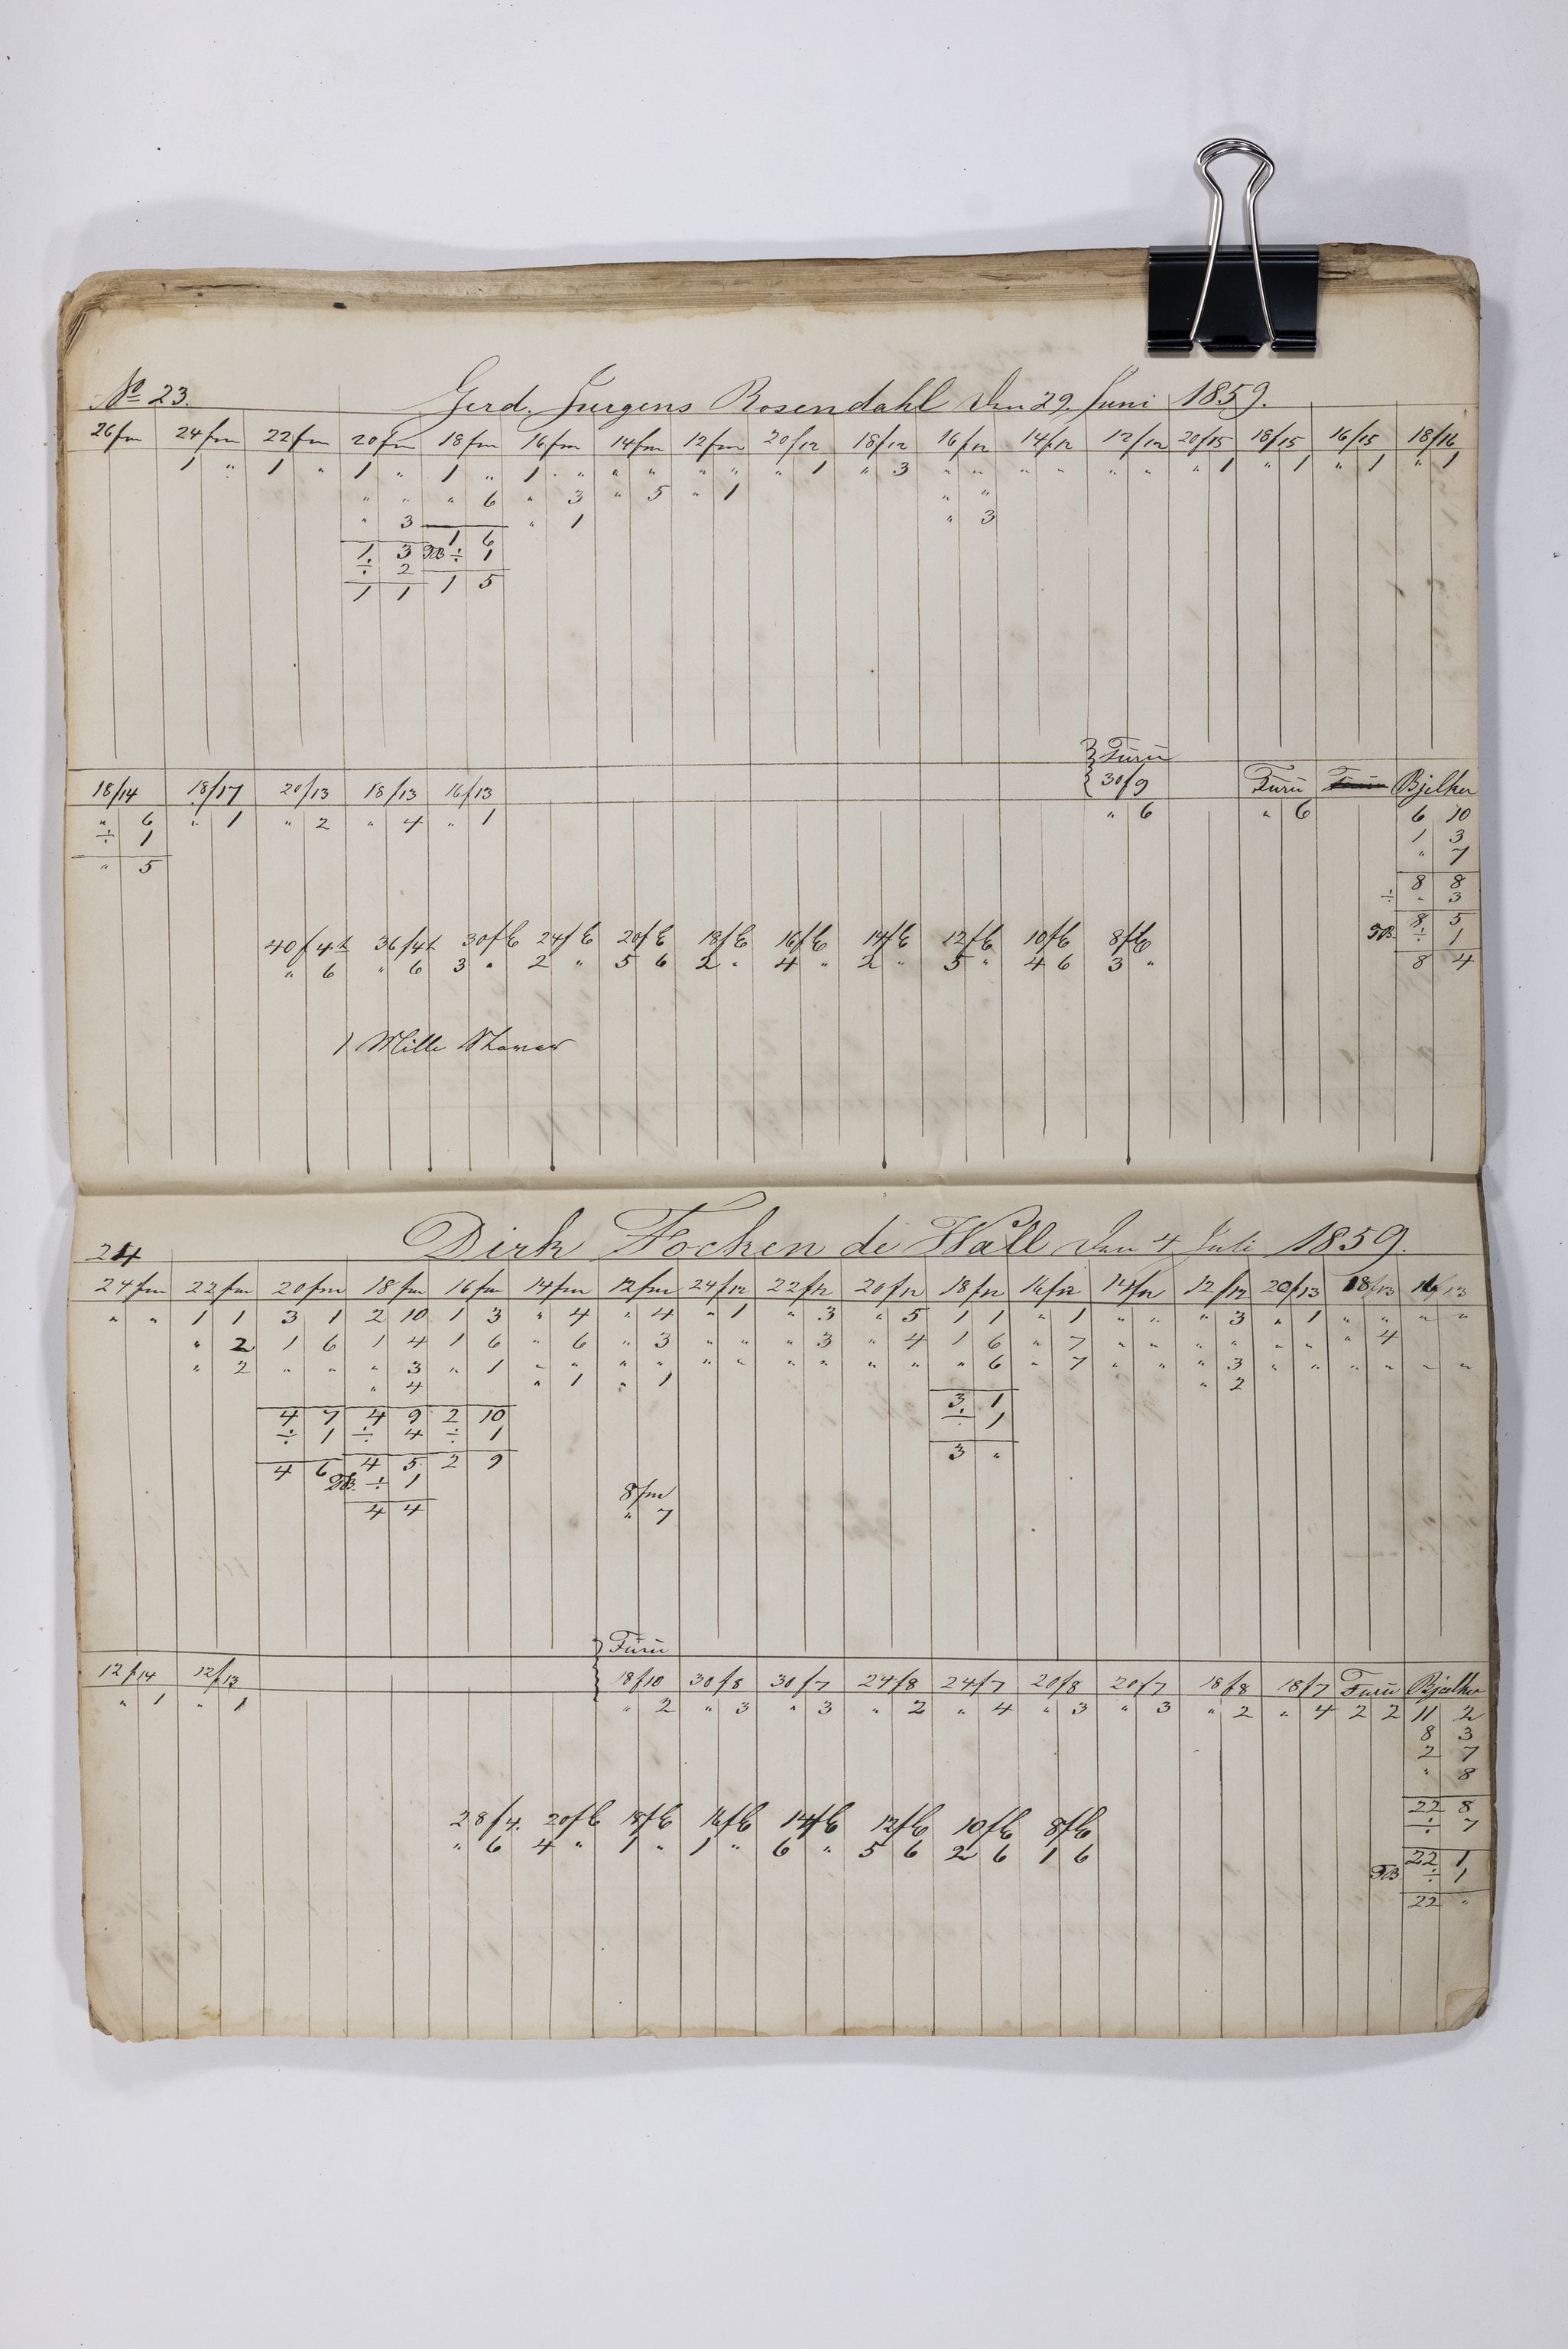 No 23. Gerd. Jurgens Rosendahl den 29. Juni 1859.
26/fm 24/fm 22/fm 20/fm 18/fm 16/fm 14/fm 12/fm 20/12 18/12 16/12 14/12 12/12 20/15 18/15 16/15 18/16
1 " 1 " 1 " 1 " 1 " " " " " " 1 " 3 " " " " " " " 1 " 1 " 1 " 1
" " " 6 " 3 " 5 " 1 " "
" 3 " 1 " 3
1 6
1 3 ÷ 1
÷ 2
1 1 1 5
Furu
18/14 18/17 20/13 18/13 16/13 30/9 Furu Bjelker
" 6 " 1 " 2 " 4 " 1 " 6 " 6 6 10
÷ 1 1 3
" 7
" 5
8 8
÷ " 3
8 5
÷ 1
40/4t 36/4t 30/E 24/E 20/E 18/E 16/E 14/E 12/E 10/E 8/E
" 6 " 6 3 " 2 " 5 6 2 " 4 " 2 " 5 " 4 6 3 " 8 4
1 Mille
24 Dirk Focken de Wall den 4 Juli 1859.
24/fm 22/fm 20/fm 18/fm 16/fm 14/fm 12/fm 24/12 22/12 20/12 18/12 16/12 14/12 12/12 20/13 18/13 16/13
" " 1 1 3 1 2 10 1 3 " 4 " 4 " 1 " 3 " 5 1 1 " 1 " " " 3 " 1 " " " "
" 2 1 6 1 4 1 6 " 6 " 3 " " " 3 " 4 1 6 " 7 " " " " " " " 4
" 2 " " " 3 " 1 " " " " " " " " " " " 6 " 7 " " " 3 " " " " " "
" 4 " 1 " 1 " 2
3 1
4 7 4 9 2 10 ÷ 1
÷ 1 ÷ 4 ÷ 1
4 6 4 5 2 9 3 "
÷ 1 8/fm
4 4 " 7
Furu
12/14 12/13 18/10 30/8 30/7 24/8 24/7 20/8 20/7 18/8 18/7 Furu Bjelker
" 1 " 1 " 2 " 3 " 3 " 2 " 4 " 3 " 3 " 2 " 4 2 2 11 2
8 3
2 7
" 8
22 8
÷ 7
28/4. 20/E 18/E 16/E 14/E 12/E 10/E 8/E
" 6 4 " 1 " 1 " 6 " 5 6 2 6 1 6
22 1
÷ 1
22 "